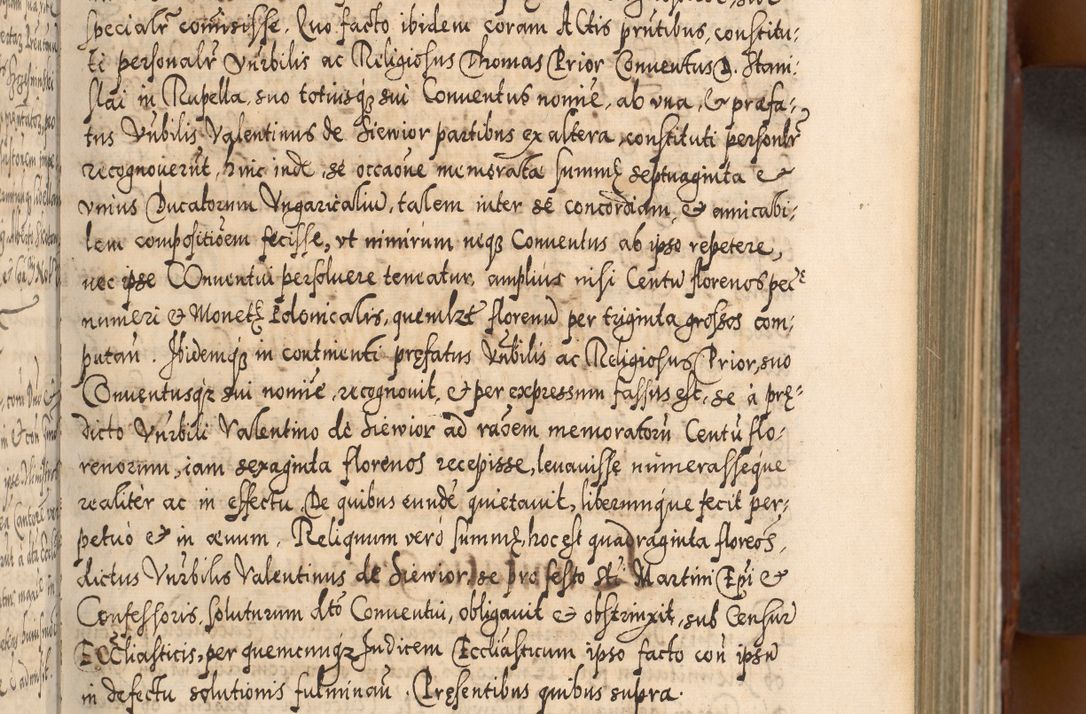 specialr comisisse. Quo facto ibidem coram Actis pñtibus, constitu-
ti personalr Vñrbilis ac Religiosus Thomas Prior Conuentus D. Stani-
slai in Rupella, suo totiusqz sui Conuentus nomie, ab vna, & præfa-
tus Vñrbilis Valentinus de Siewior partibus ex altera, constituti personlr
recognouerut, hinc inde, se occaõne memorata summę septuaginta &
vnius Ducatorum Vngaricaliu, talem inter se concordiam, & amicabi-
lem compositiõem fecisse, vt nimirum neqz Conuentus ab ipso repetere,
nec ipse Conuentui persoluere teneatur, amplius nisi Centu florenos pec
numeri & Monetę Polonicalis, quemlzt florenu per triginta grossos com-
putan. Ibidemqz in continenti pręfatus Vñrbilis ac Religiosus Prior, suo
Conuentusqz sui nomie, recognouit, & per expressum fassus est, se à prę-
dicto Vñrbili Valentino de Siewior ad raõem memoratoru Centu flo-
renorum, iam sexaginta florenos recepisse, leuauisse numerasseque
realiter ac in effectu. De quibus eunde quietauit, liberumque fecit per-
petuò & in æuum. Reliquum verò summę, hoc est quadraginta floreos,
dictus Vñrbilis Valentinus de Siewior, se pro festo Sti Martini Epi &
Confessoris, soluturum dtõ Conuentui, obligauit & obstrinxit, sub Censur
Eccliasticis, per quemcunqz Iudicem Eccliasticum ipso facto con ipsu
in defectu solutionis fulminan. Pręsentibus quibus supra.